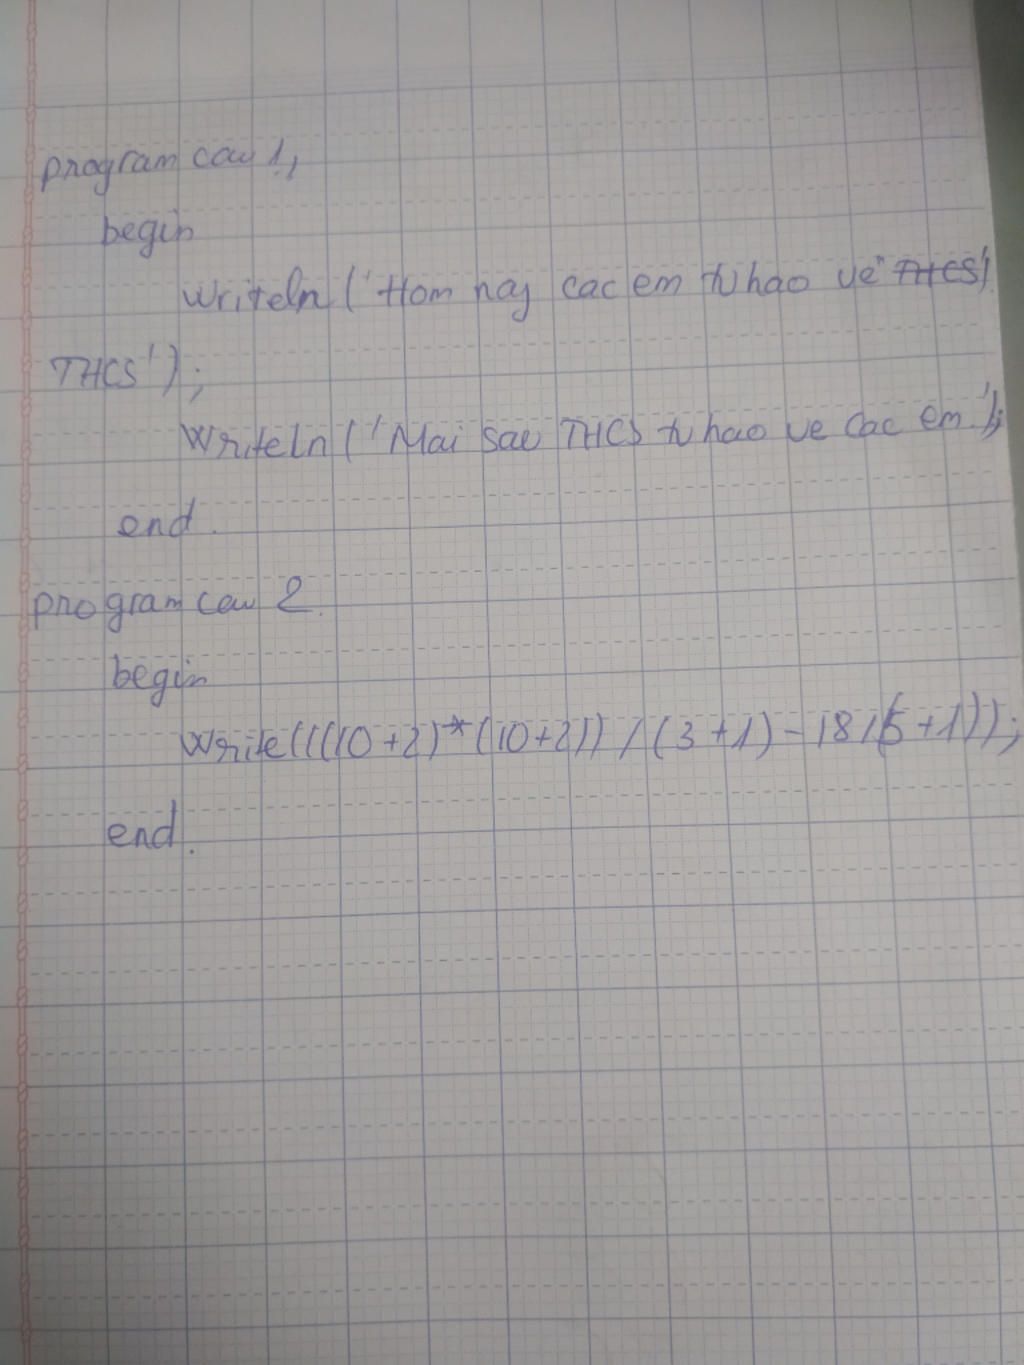 program cau 1;
begin
writeln ('Hom nay cac em tu hao ve THCS')
THCS');
Writeln ('Mai sau THCS tu hao ve cac em.');
end.
program cau 2.
begin
Write((((10+2)*(10+2)) / (3+1) - 18/(5+1));
end.